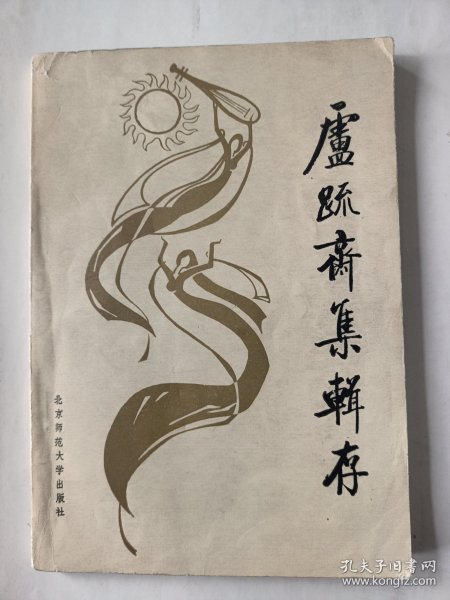 盧疏齋集輯存
北京师范大学出版社
孔夫子旧书网
www.kongfz.com